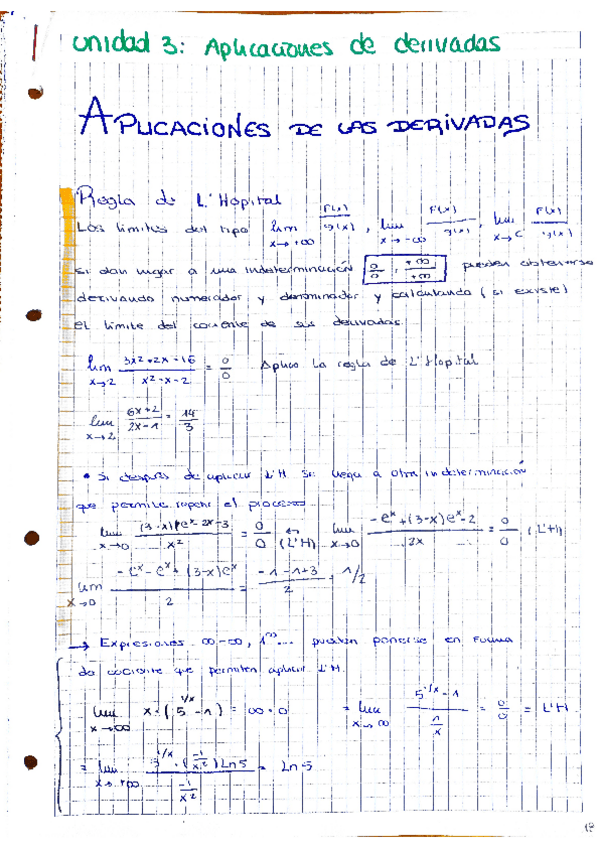 Unidad 3: Aplicaciones de derivadas
APLICACIONES DE LAS DERIVADAS
Regla de L'Hopital
Los limites del tipo lim x→+∞ F(x)/g(x), lim x→-∞ F(x)/g(x), lim x→c F(x)/g(x)
si dan lugar a una indeterminación 0/0, ±∞/±∞ pueden obtenerse
derivando numerador y denominador y calculando (si existe)
el limite del cociente de sus derivadas.
lim x→2 3x²+2x-16 / x²-x-2 = 0/0 Aplico la regla de L'Hopital
lim x→2 6x+2 / 2x-1 = 14/3
• Si después de aplicar L'H se llega a otra indeterminación
que permite repetir el proceso
lim x→0 (3-x)e^x-2x-3 / x² = 0/0 (L'H) lim x→0 -e^x+(3-x)e^x-2 / 2x = 0/0 (L'H)
lim x→0 -e^x-e^x+(3-x)e^x / 2 = -1-1+3 / 2 = 1/2
→ Expresiones ∞-∞, 1^∞... pueden ponerse en forma
de cociente que permiten aplicar L'H.
lim x→∞ x·(5^1/x -1) = ∞·0 = lim x→∞ 5^1/x -1 / 1/x = 0/0 = L'H.
= lim x→+∞ 5^1/x · (-1/x²) Ln5 / -1/x² = Ln5